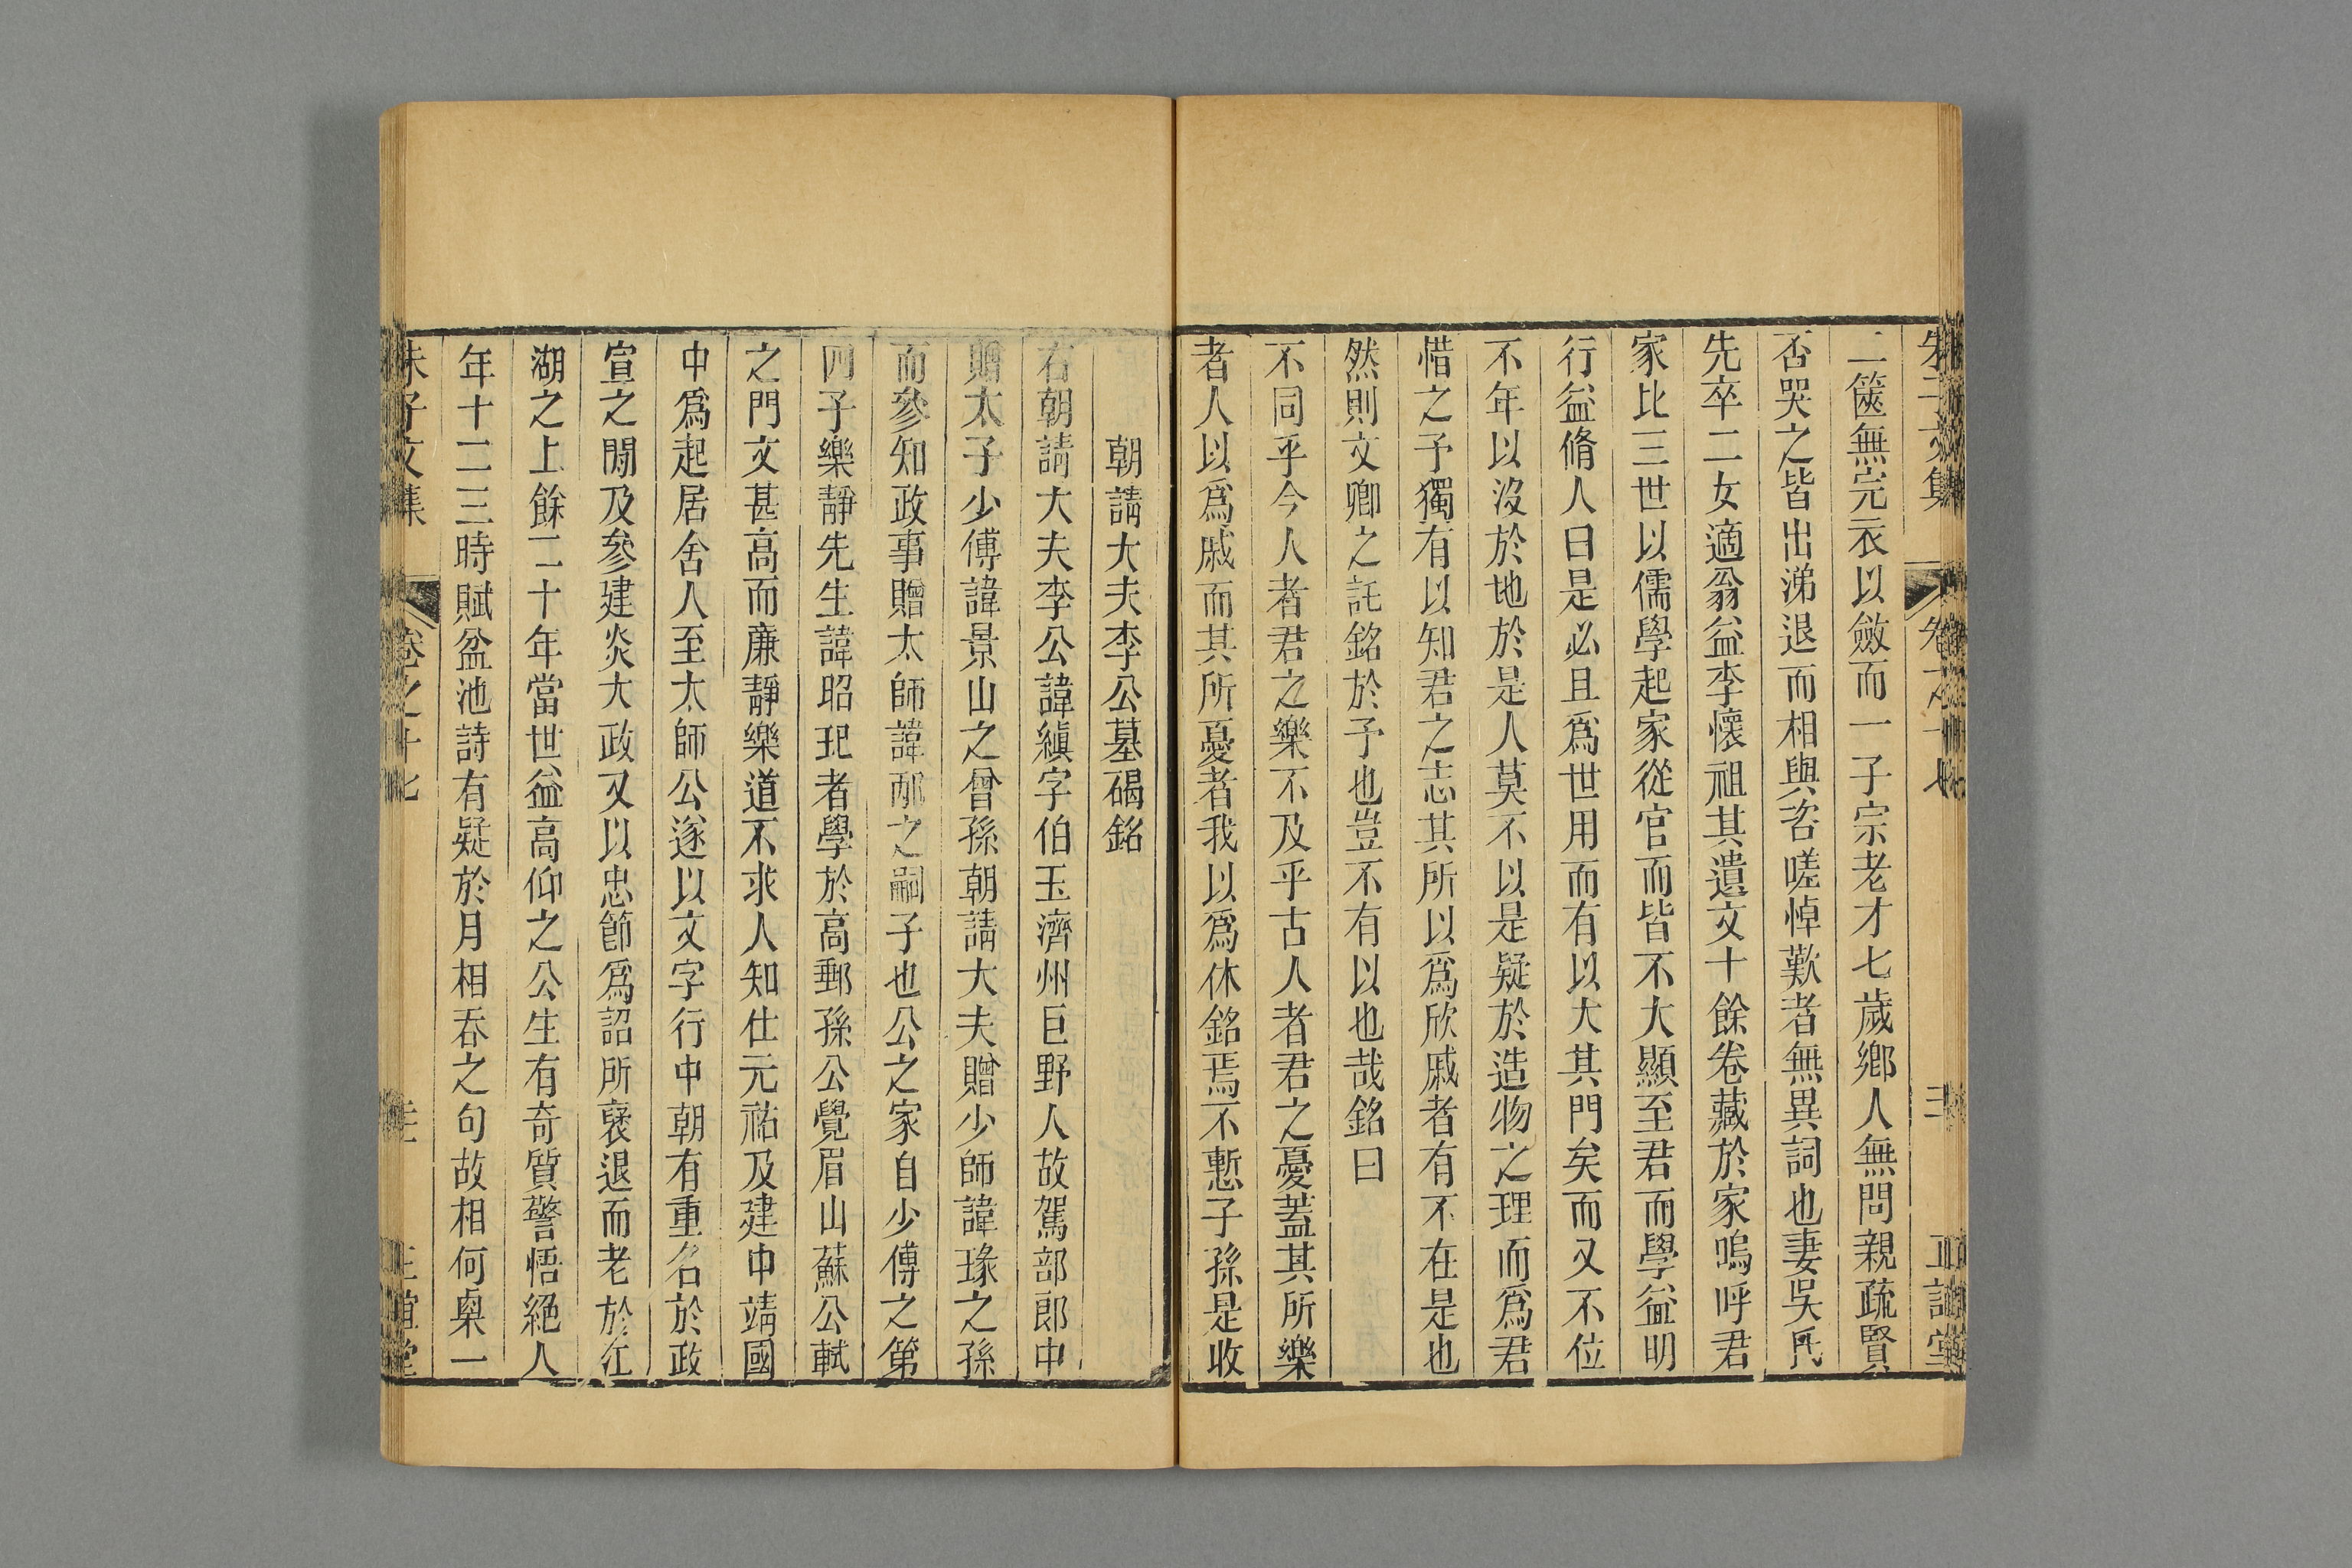 朱子文集 卷之十七 正誼堂
一篋無完衣以斂而一子宗老才七歲鄉人無問親疏賢
否哭之皆出涕退而相與咨嗟悼歎者無異詞也妻吳氏
先卒二女適翁益李懷祖其遺文十餘卷藏於家嗚呼君
家比三世以儒學起家從官而皆不大顯至君而學益明
行益脩人曰是必且爲世用而有以大其門矣而又不位
不年以沒於地於是人莫不以是疑於造物之理而爲君
惜之予獨有以知君之志其所以爲欣戚者有不在是也
然則文卿之託銘於予也豈不有以也哉銘曰
不同乎今人者君之樂不及乎古人者君之憂蓋其所樂
者人以爲戚而其所憂者我以爲休銘焉不慙子孫是收
朝請大夫李公墓碣銘
右朝請大夫李公諱縝字伯玉濟州巨野人故駕部郎中
贈太子少傅諱景山之曾孫朝請大夫贈少師諱瑑之孫
而參知政事贈太師諱邴之嗣子也公之家自少傅之第
四子樂靜先生諱昭玘者學於高郵孫公覺眉山蘇公軾
之門文甚高而廉靜樂道不求人知仕元祐及建中靖國
中爲起居舍人至太師公遂以文字行中朝有重名於政
宣之間及參建炎大政又以忠節爲詔所褒退而老於江
湖之上餘二十年當世益高仰之公生有奇質警悟絕人
年十二三時賦盆池詩有疑於月相吞之句故相何㮚一
朱子文集 卷之十七 正誼堂